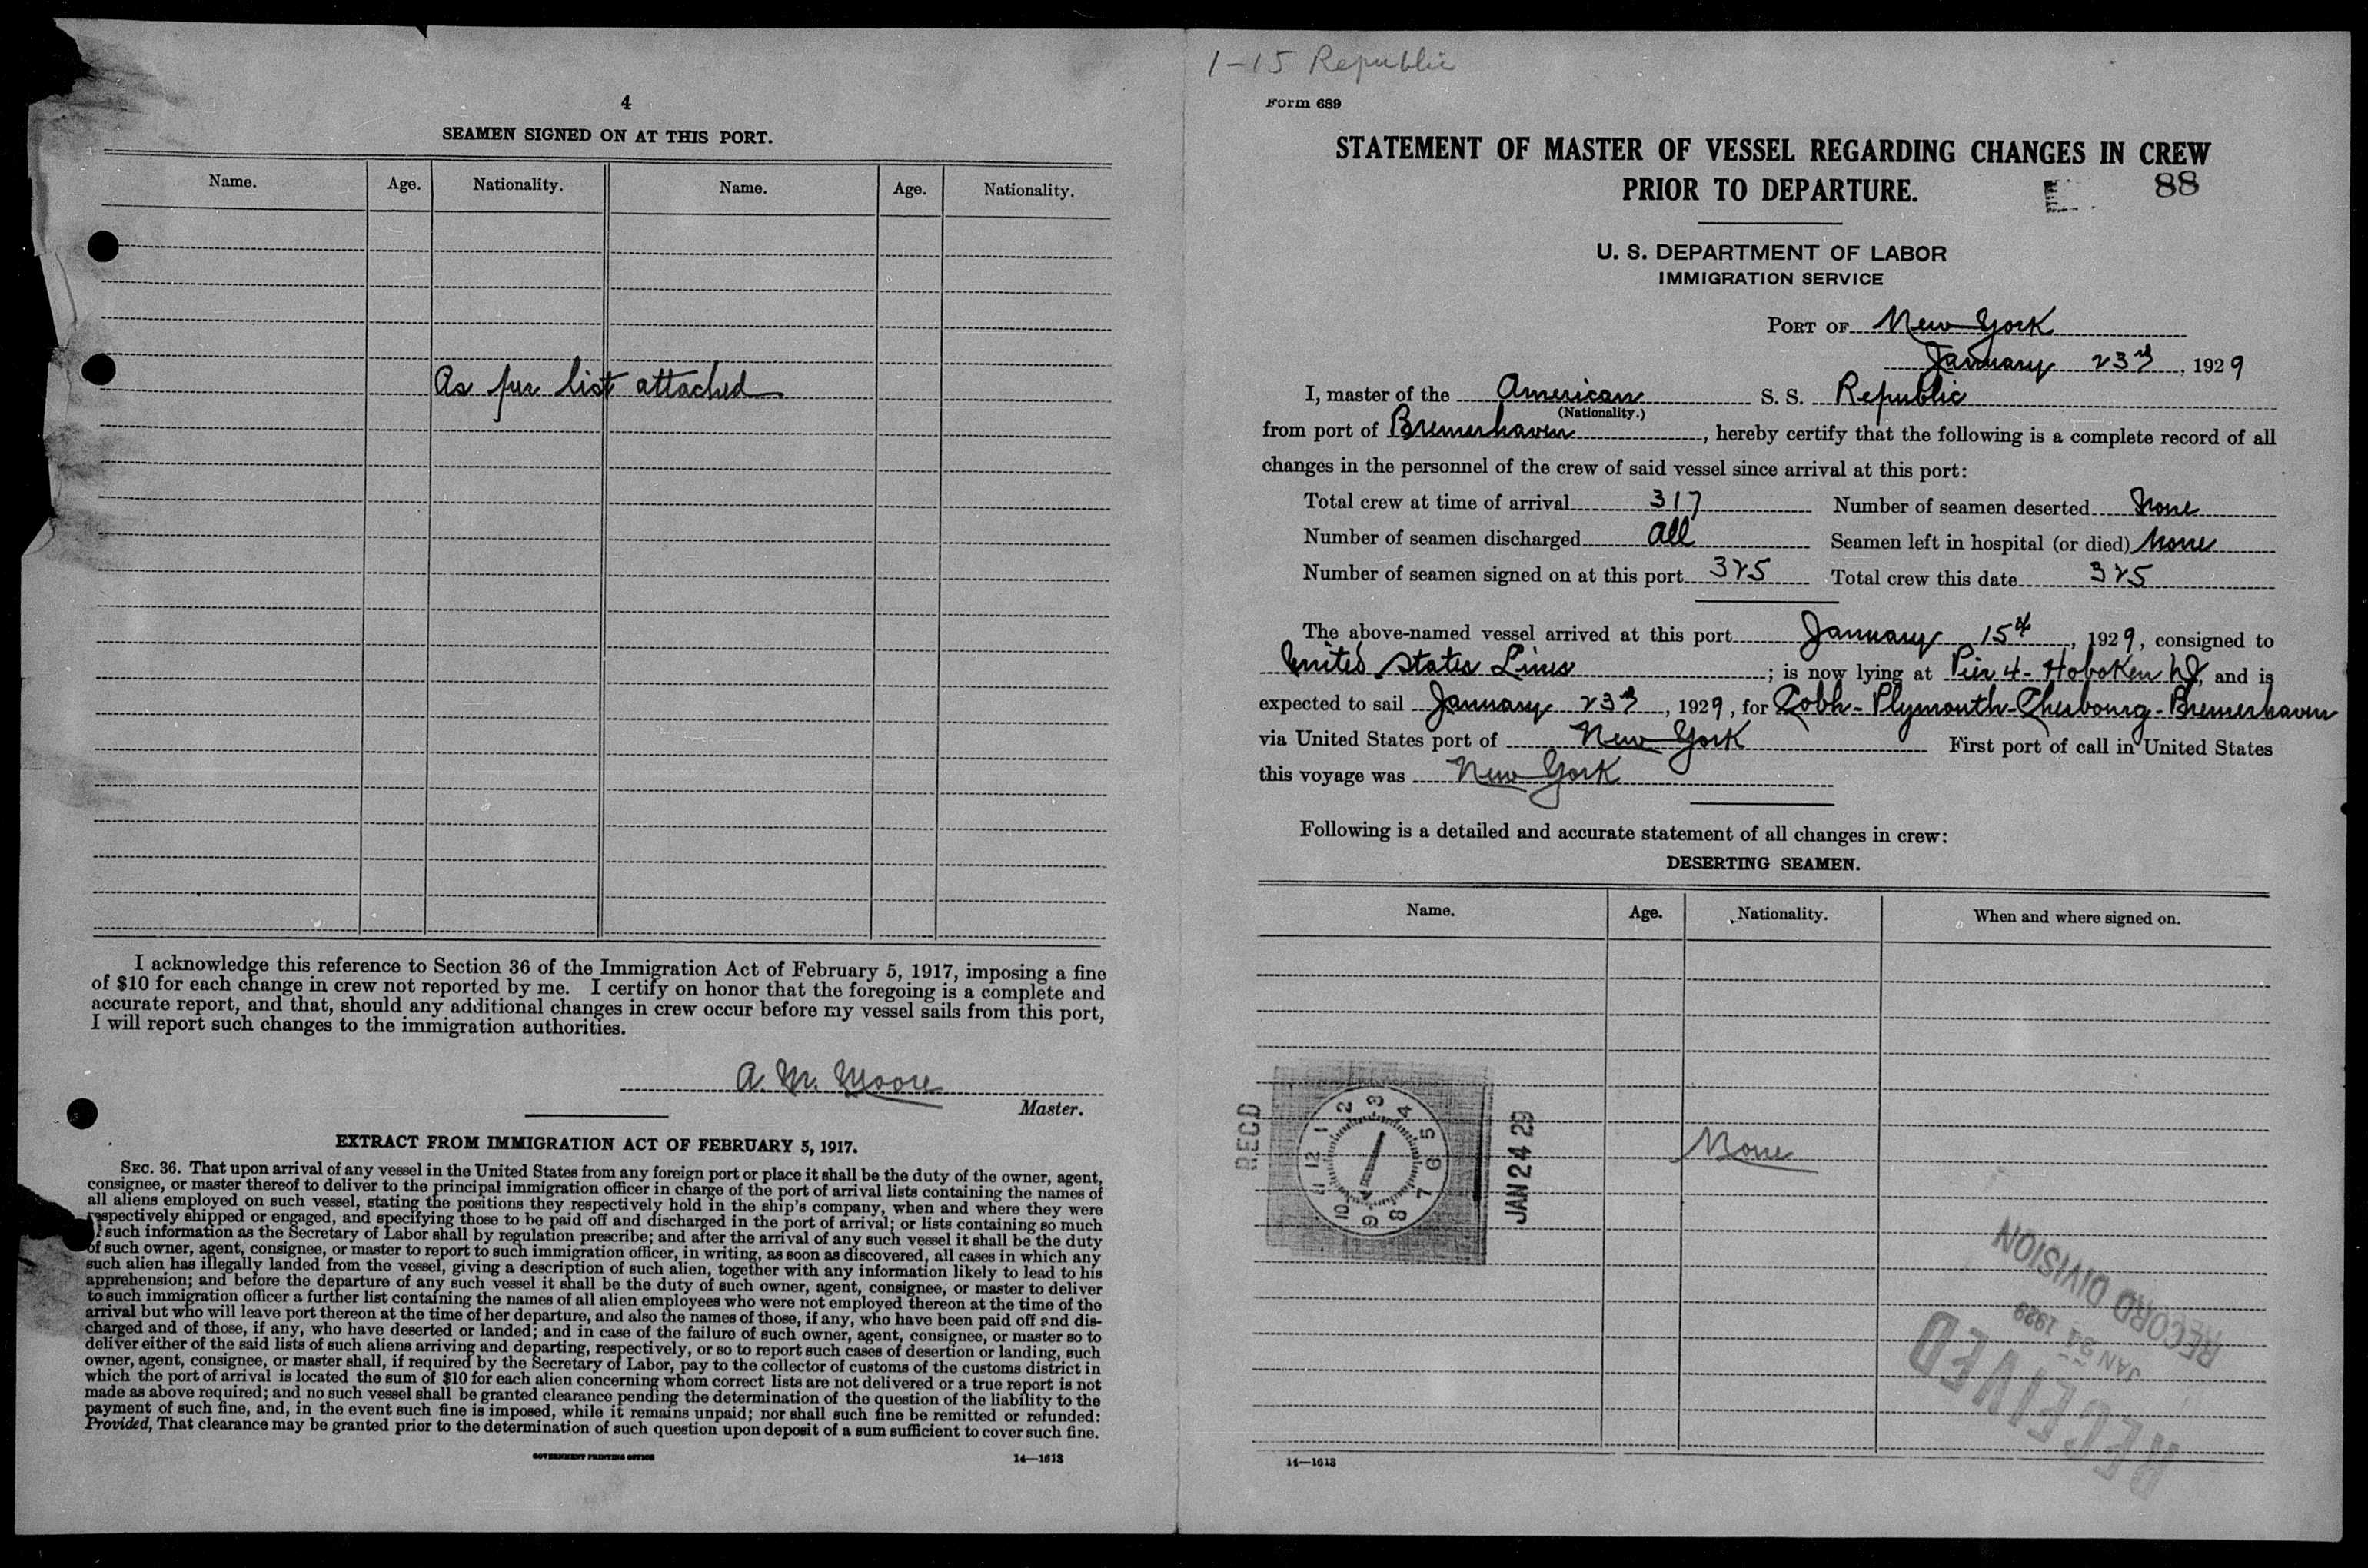 4
SEAMEN SIGNED ON AT THIS PORT.
Name. Age. Nationality. Name. Age. Nationality.
As per list attached
I acknowledge this reference to Section 36 of the Immigration Act of February 5, 1917, imposing a fine
of $10 for each change in crew not reported by me. I certify on honor that the foregoing is a complete and
accurate report, and that, should any additional changes in crew occur before my vessel sails from this port,
I will report such changes to the immigration authorities.
A. M. Moore
Master.
EXTRACT FROM IMMIGRATION ACT OF FEBRUARY 5, 1917.
SEC. 36. That upon arrival of any vessel in the United States from any foreign port or place it shall be the duty of the owner, agent,
consignee, or master thereof to deliver to the principal immigration officer in charge of the port of arrival lists containing the names of
all aliens employed on such vessel, stating the positions they respectively hold in the ship's company, when and where they were
respectively shipped or engaged, and specifying those to be paid off and discharged in the port of arrival; or lists containing so much
of such information as the Secretary of Labor shall by regulation prescribe; and after the arrival of any such vessel it shall be the duty
of such owner, agent, consignee, or master to report to such immigration officer, in writing, as soon as discovered, all cases in which any
such alien has illegally landed from the vessel, giving a description of such alien, together with any information likely to lead to his
apprehension; and before the departure of any such vessel it shall be the duty of such owner, agent, consignee, or master to deliver
to such immigration officer a further list containing the names of all alien employees who were not employed thereon at the time of the
arrival but who will leave port thereon at the time of her departure, and also the names of those, if any, who have been paid off and dis-
charged and of those, if any, who have deserted or landed; and in case of the failure of such owner, agent, consignee, or master so to
deliver either of the said lists of such aliens arriving and departing, respectively, or so to report such cases of desertion or landing, such
owner, agent, consignee, or master shall, if required by the Secretary of Labor, pay to the collector of customs of the customs district in
which the port of arrival is located the sum of $10 for each alien concerning whom correct lists are not delivered or a true report is not
made as above required; and no such vessel shall be granted clearance pending the determination of the question of the liability to the
payment of such fine, and, in the event such fine is imposed, while it remains unpaid; nor shall such fine be remitted or refunded:
Provided, That clearance may be granted prior to the determination of such question upon deposit of a sum sufficient to cover such fine.
GOVERNMENT PRINTING OFFICE 14—1613
1-15 Republic
Form 689
STATEMENT OF MASTER OF VESSEL REGARDING CHANGES IN CREW
PRIOR TO DEPARTURE.
E 88
U. S. DEPARTMENT OF LABOR
IMMIGRATION SERVICE
PORT OF New York
January 23rd, 1929
I, master of the American S. S. Republic
(Nationality.)
from port of Bremerhaven, hereby certify that the following is a complete record of all
changes in the personnel of the crew of said vessel since arrival at this port:
Total crew at time of arrival 317 Number of seamen deserted None
Number of seamen discharged All Seamen left in hospital (or died) None
Number of seamen signed on at this port 325 Total crew this date 325
The above-named vessel arrived at this port January 15th, 1929, consigned to
United States Lines; is now lying at Pier 4 - Hoboken NJ, and is
expected to sail January 23rd, 1929, for Cobh - Plymouth - Cherbourg - Bremerhaven
via United States port of New York First port of call in United States
this voyage was New York
Following is a detailed and accurate statement of all changes in crew:
DESERTING SEAMEN.
Name. Age. Nationality. When and where signed on.
None
RECD
1 2 3 4 5 6 7 8 9 10 11 12
JAN 24 29
RECEIVED
JAN 24 1929
RECORD DIVISION
14—1613